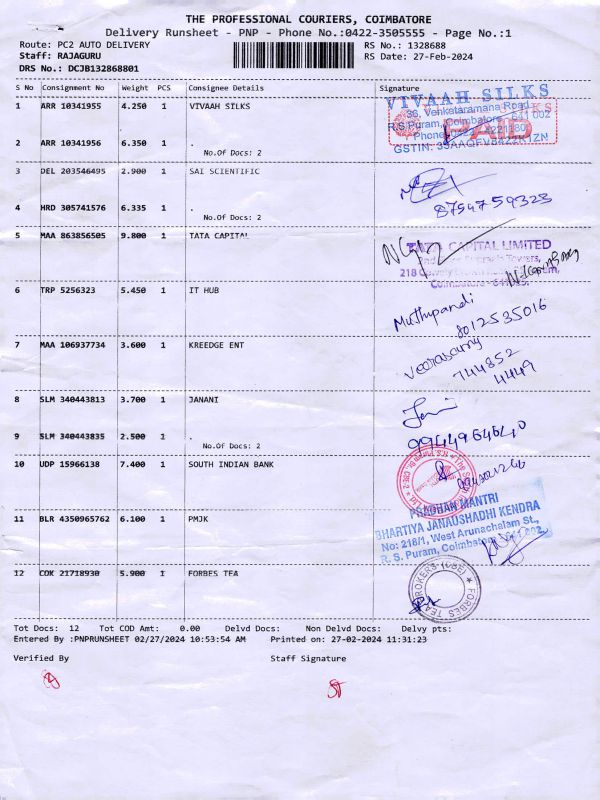 THE PROFESSIONAL COURIERS, COIMBATORE
Delivery Runsheet - PNP - Phone No.:0422-3505555 - Page No.:1
Route: PC2 AUTO DELIVERY RS No.: 1328688
Staff: RAJAGURU RS Date: 27-Feb-2024
DRS No.: DCJB132868801
S No Consignment No Weight PCS Consignee Details Signature
1 ARR 10341955 4.250 1 VIVAAH SILKS
VIVAAH SILKS
36, Venkataramana Road,
R.S.Puram, Coimbatore - 641 002
PAID
2 ARR 10341956 6.350 1 .
No.Of Docs: 2
3 DEL 203546495 2.900 1 SAI SCIENTIFIC
8754759323
4 HRD 305741576 6.335 1 .
No.Of Docs: 2
5 MAA 863856505 9.800 1 TATA CAPITAL
TATA CAPITAL LIMITED
6 TRP 5256323 5.450 1 IT HUB
Muthupandi
8012535016
7 MAA 106937734 3.600 1 KREEDGE ENT
Veerasamy
744852
4449
8 SLM 340443813 3.700 1 JANANI
9 SLM 340443835 2.500 1 .
No.Of Docs: 2
9944964640
10 UDP 15966138 7.400 1 SOUTH INDIAN BANK
11 BLR 4350965762 6.100 1 PMJK
PRADHAN MANTRI
BHARTIYA JANAUSHADHI KENDRA
No: 218/1, West Arunachalam St.,
R. S. Puram, Coimbatore
12 COK 21718930 5.900 1 FORBES TEA
FORBES TEA BROKERS (CBE)
Tot Docs: 12 Tot COD Amt: 0.00 Delvd Docs: Non Delvd Docs: Delvy pts:
Entered By :PNPRUNSHEET 02/27/2024 10:53:54 AM Printed on: 27-02-2024 11:31:23
Verified By Staff Signature